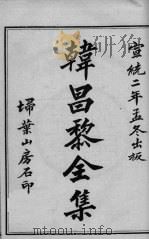 宣統二年孟冬出版
韓昌黎全集
埽葉山房石印